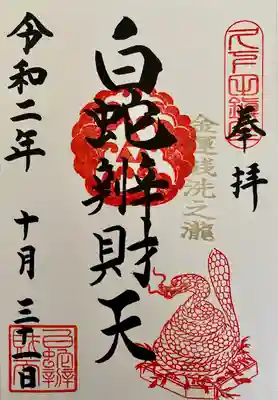 奉拝
金運銭洗之瀧
白蛇辨財天
令和二年 十月 三十一日